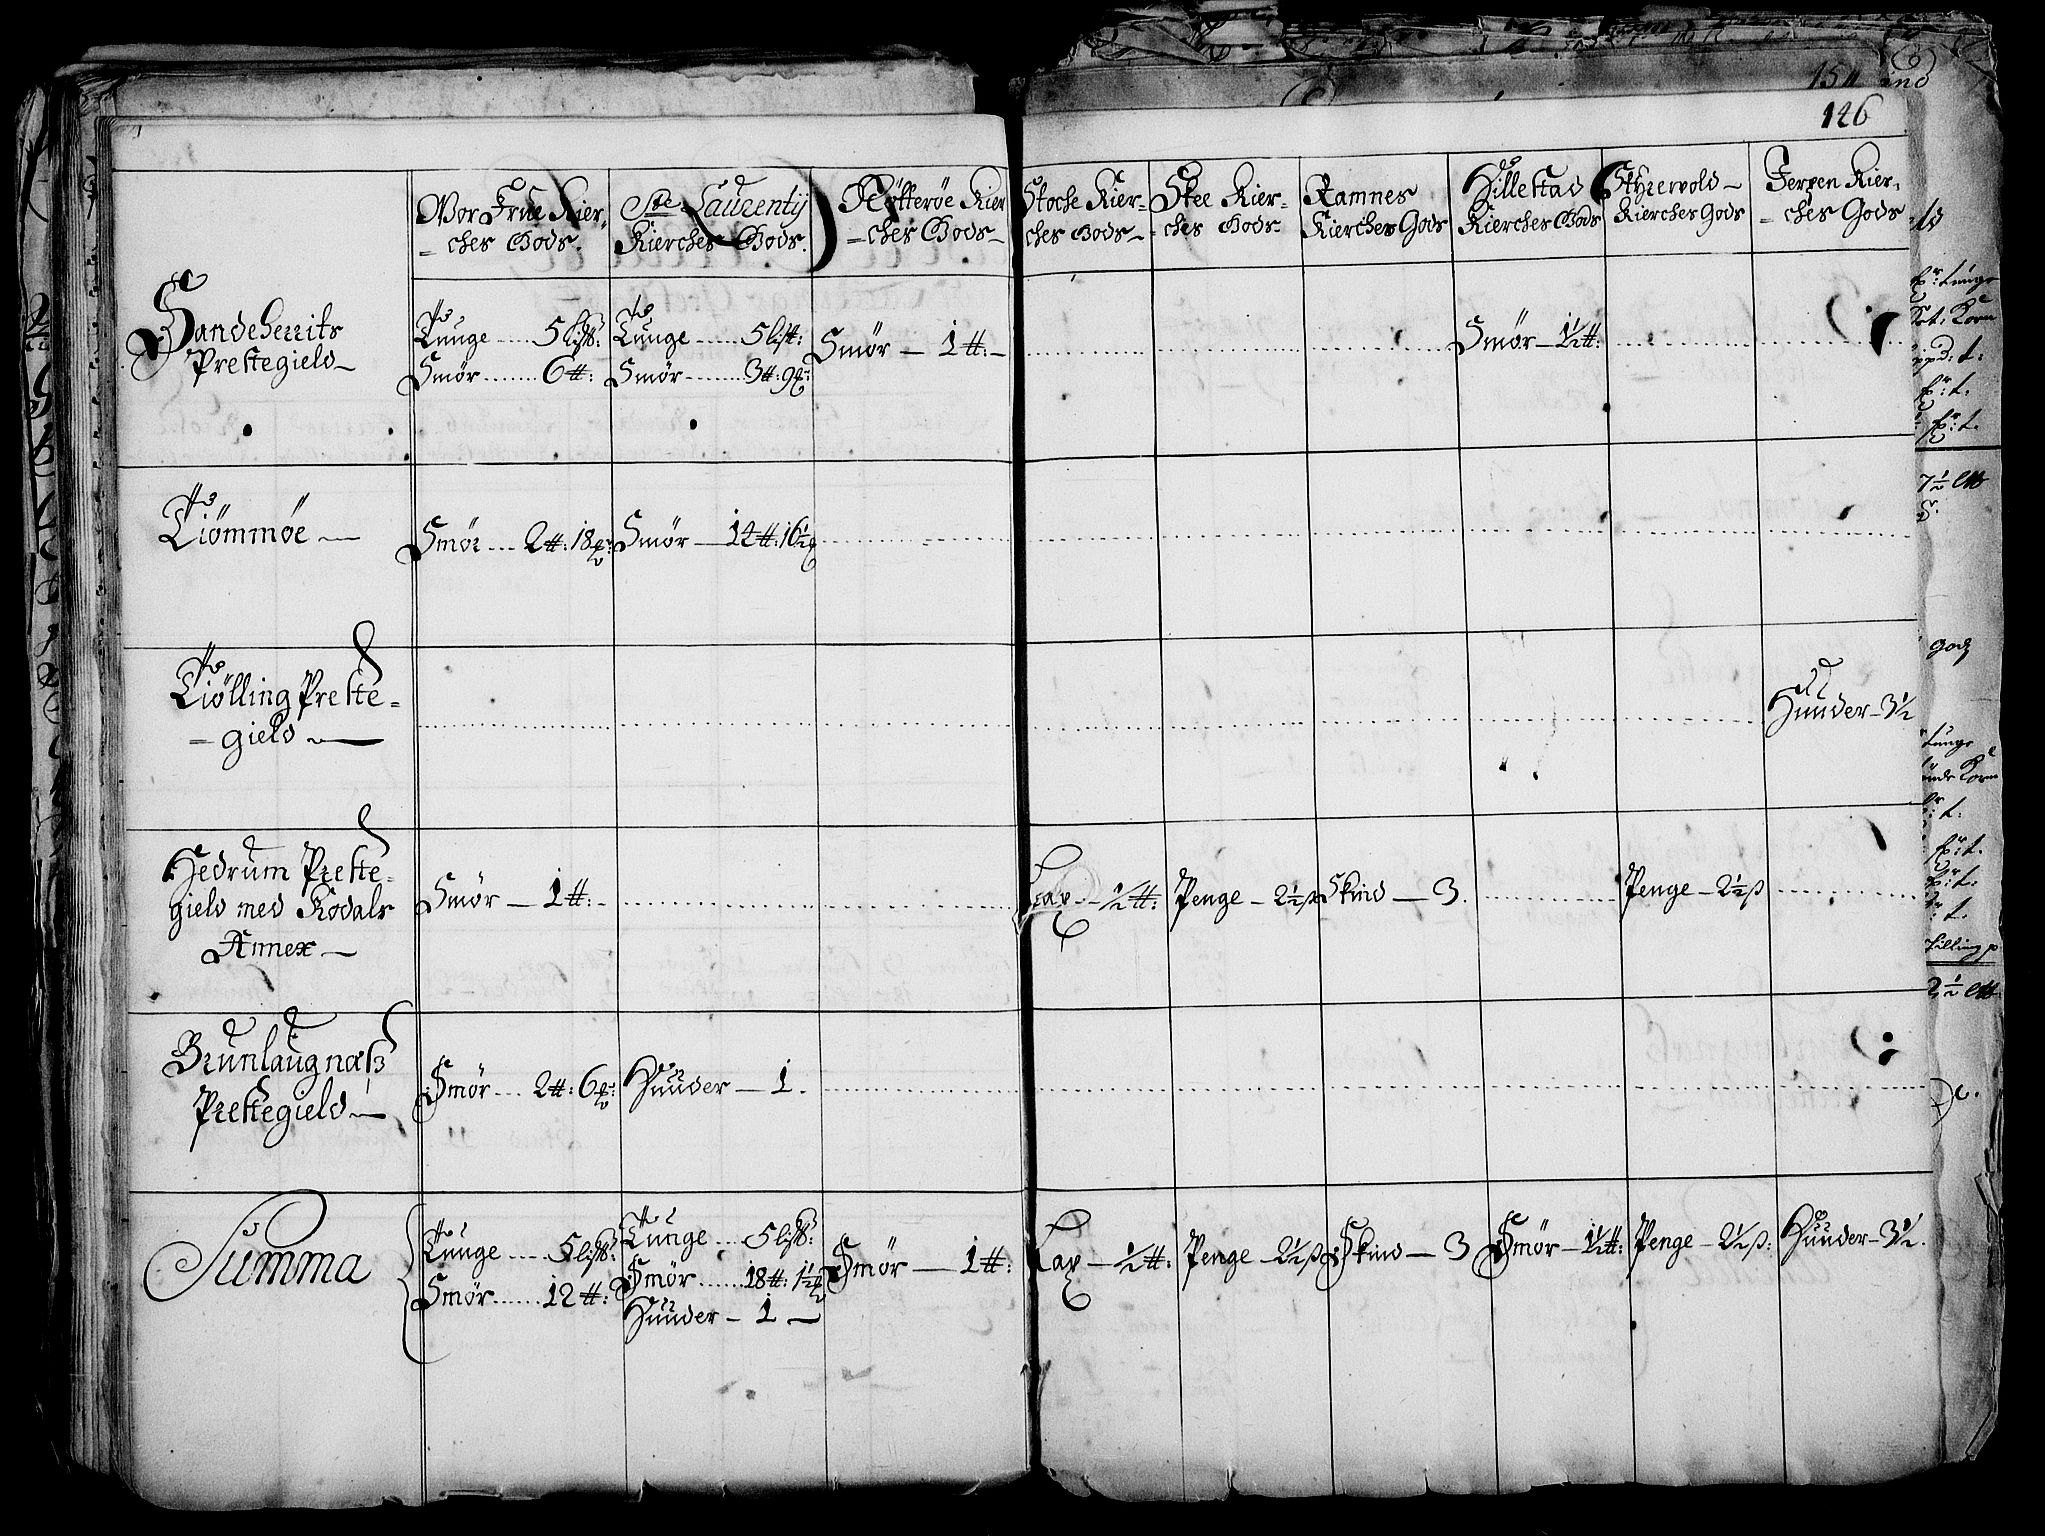 126
Vor Frue Kier-
ches Gods.
Ste Laurentij
Kierches Gods.
Nøtterøe Kier
-ches Gods-
Stoche Kier-
ches Gods-
Skee Kier-
ches Gods.
Ramnes
Kierches Gods
Hillestad
Kierches Gods
Styrevold-
Kierches Gods
Jerpen Kier-
ches Gods
Sandeherrits
Prestegield-
Tunge ..... 5 lis℔:
Smør ........ 6 ℔:
Tunge ...... 5 list:
Smør ......... 3 ℔: 9
Smør - 1 ℔: -
Smør - 1½ ℔:
Tiømmøe -
Smør .... 2 ℔: 18
Smør - 14 ℔: 16½
Tiølling Preste-
-gield -
Hunder - 3½
Hedrum Preste-
gield med Kodals
Annex -
Smør - 1 ℔: -
Lax - ½ ℔:
Penge - 2½ ß
Skind - 3.
Penge - 2½ ß
Brunlaugnæß
Prestegield -
Smør .... 2 ℔: 6
Hunder - 1.
Summa
Tunge ...... 5 lis℔:
Smør ...... 12 ℔:
Tunge .... 5 lis℔:
Smør ...... 18 ℔: 1½
Hunder - 1 -
Smør - 1 ℔:
Lax - ½ ℔:
Penge - 2½ ß
Skind - 3
Smør - 1½ ℔:
Penge - 2½ ß:
Hunder - 3½.